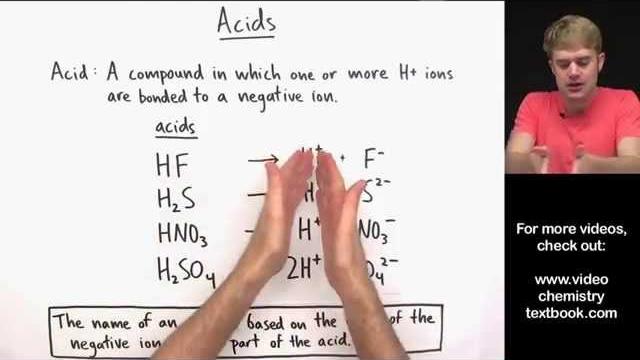 Acids
Acid: A compound in which one or more H+ ions
are bonded to a negative ion.
acids
HF → H+ + F-
H2S S2-
HNO3 H+ NO3-
H2SO4 2H+ 2-
The name of an based on the of the
negative ion part of the acid.
For more videos,
check out:
www.video
chemistry
textbook.com